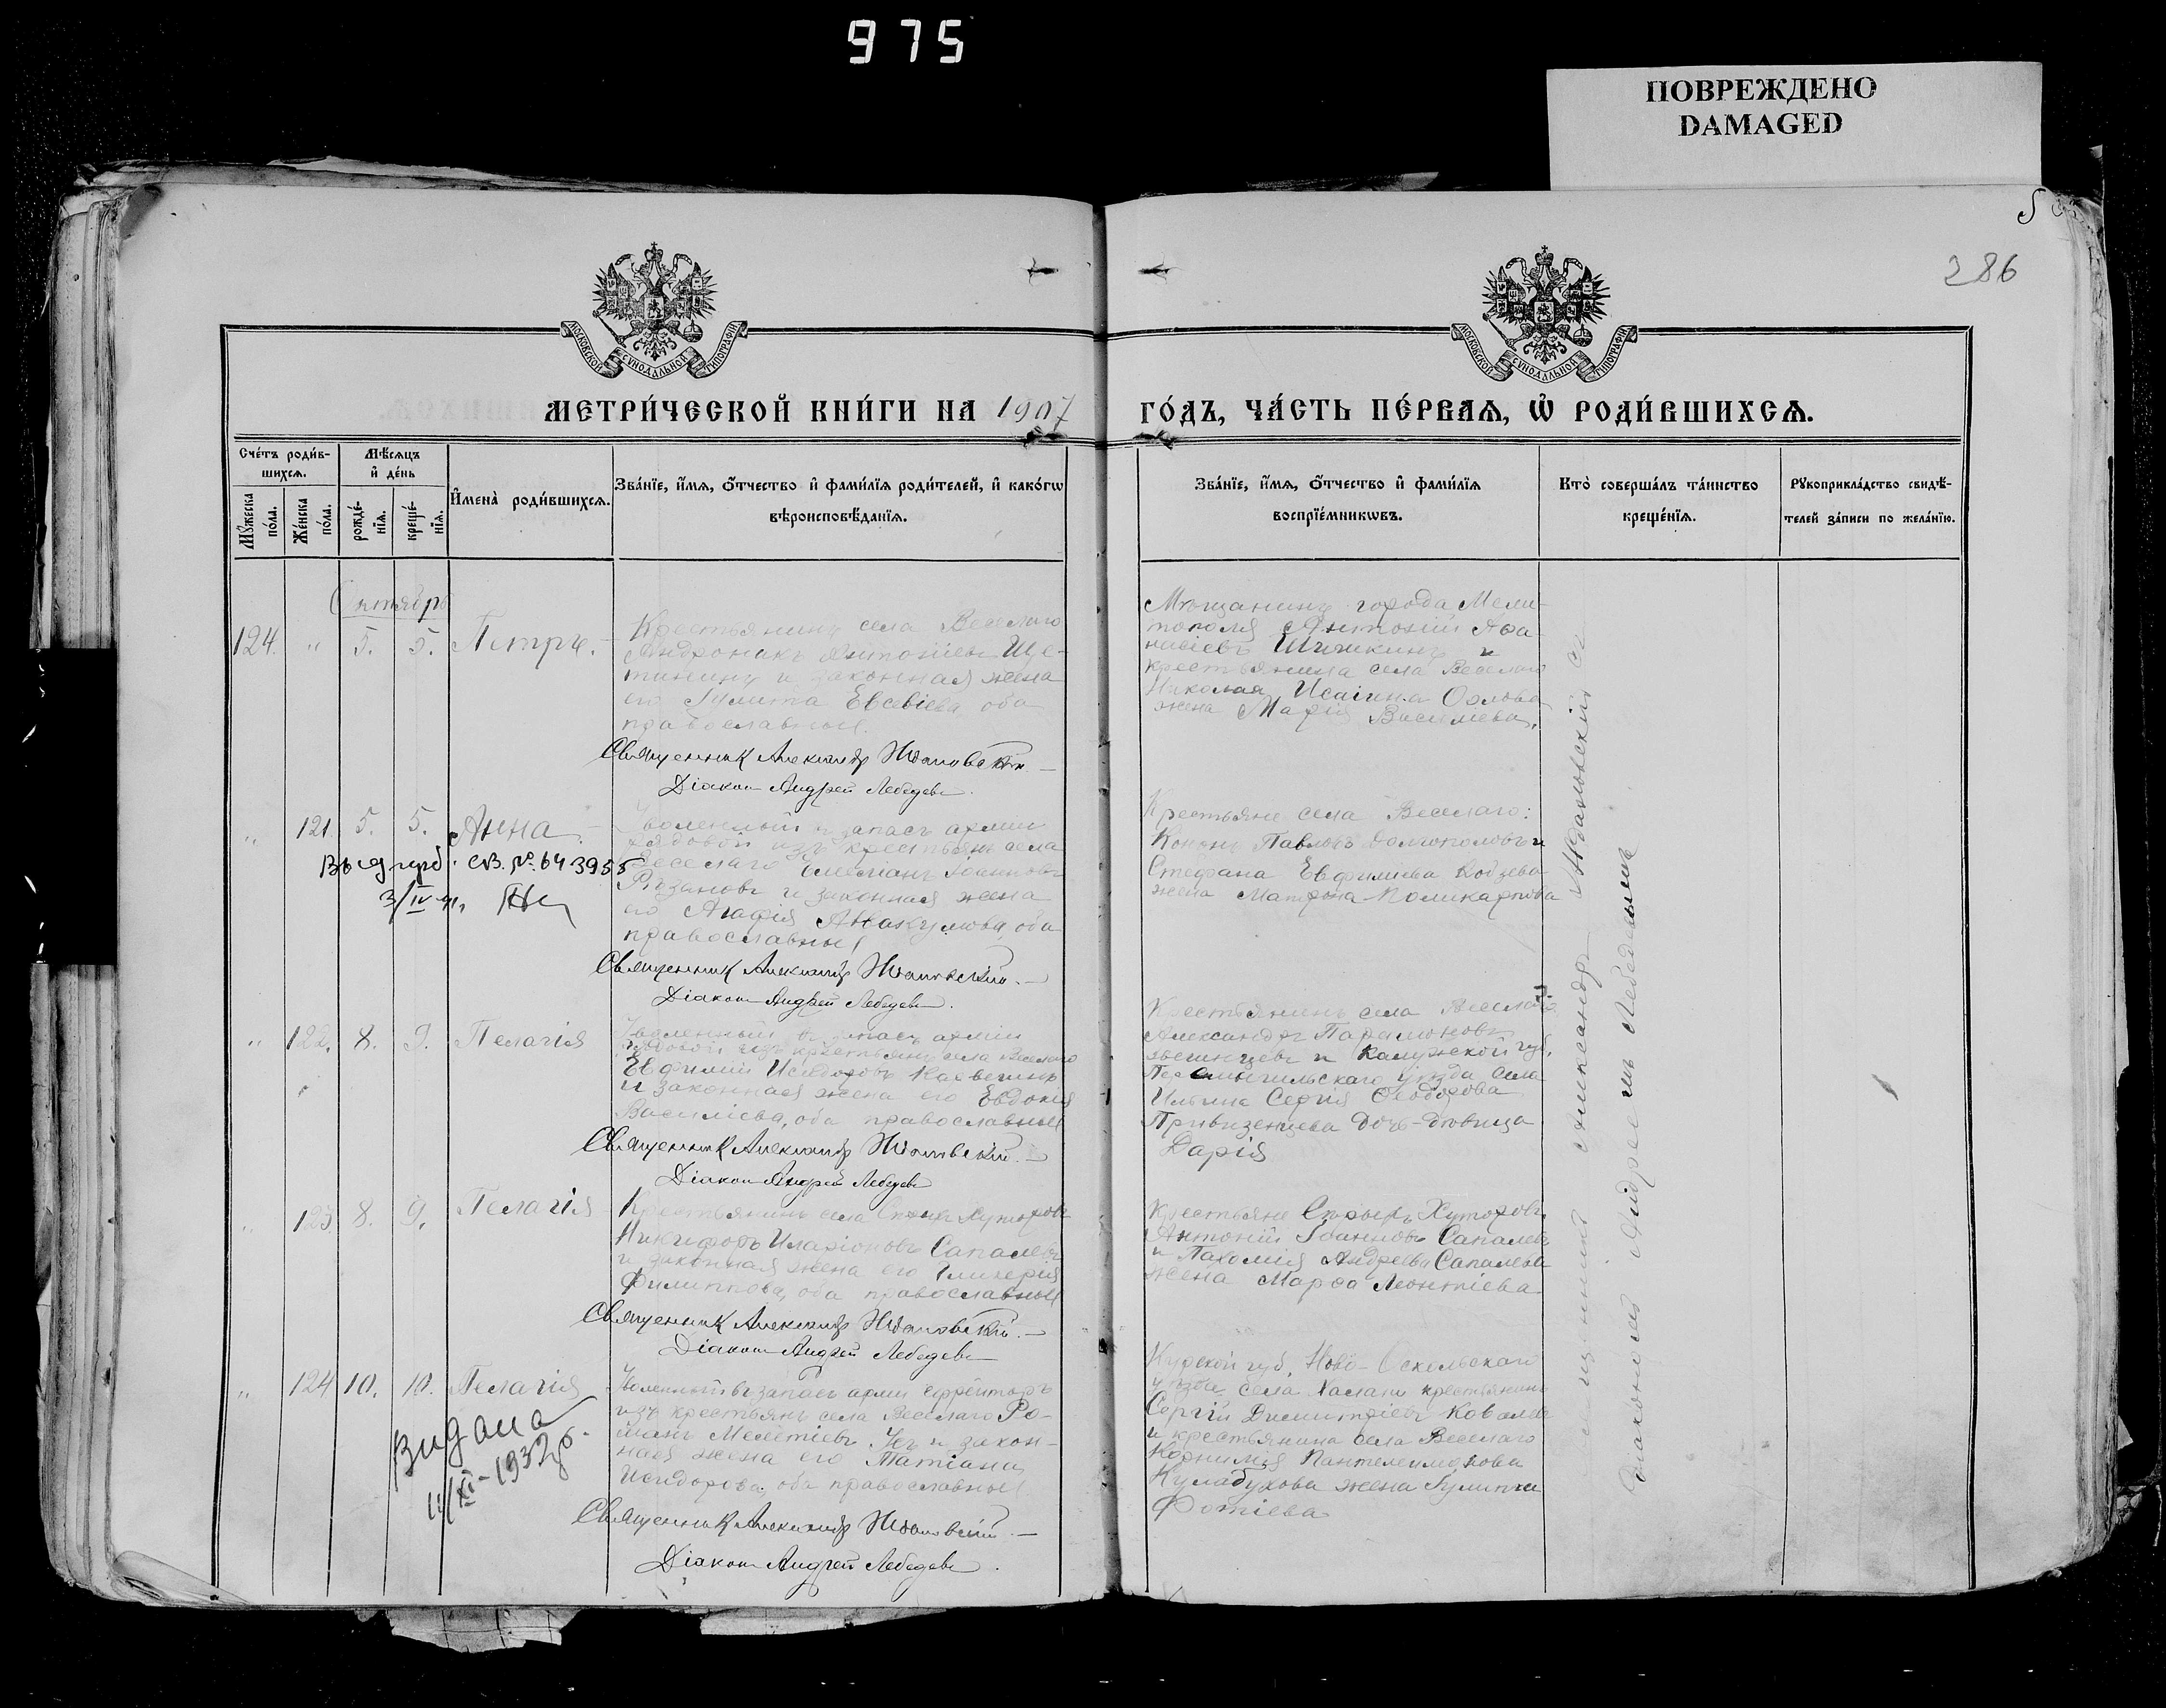 975
ПОВРЕЖДЕНО
DAMAGED
286
МОСКОВСКОЙ СѴНОДАЛЬНОЙ ТИПОГРАФІИ
МОСКОВСКОЙ СѴНОДАЛЬНОЙ ТИПОГРАФІИ
МЕТРИ́ЧЕСКОЙ КНИ́ГИ НА 1907
ГО́ДЪ, ЧА́СТЬ ПЕ́РВАѦ, Ѡ҆ РОДИ́ВШИХСѦ.
Сче́тъ роди́в-
шихсѧ.
Мꙋ́жеска
по́ла.
Же́нска
по́ла.
Мѣ́сѧцъ
и҆ де́нь
рожде́-
нїѧ.
креще́-
нїѧ.
И҆мена̀ роди́вшихсѧ.
Зва́нїе, и҆́мѧ, ѻ҆́тчество и҆ фами́лїѧ роди́телей, и҆ како́гѡ
вѣроисповѣ́данїѧ.
Зва́нїе, и҆́мѧ, ѻ҆́тчество и҆ фами́лїѧ
воспрїе́мникѡвъ.
Кто̀ соверша́лъ та́инство
креще́нїѧ.
Рꙋкоприкла́дство свидѣ́-
телей за́писи по жела́нїю.
Октябрь
124. " 5. 5. Петръ.
Крестьянинъ села Веселаго
Андроникъ Антоніевъ Ще-
тининъ и законная жена
его Іулита Евсевіева, оба
православные.
Священникъ Александр Ждановский
Діаконъ Андрей Лебедевъ.
Мѣщанинъ города Мели-
тополя Антоній Аѳа-
насіевъ Шишкинъ и
крестьянина села Веселаго
Николая Исаіина Орлова
жена Марія Василиева.
" 121. 5. 5. Анна.
Св. № 643955
3/IV
Уволенный в запасъ арміи
рядовой изъ крестьянъ села
Веселаго Іоанновъ
Рязановъ и законная жена
его Агафія Аввакумова, оба
православные
Священникъ Александр Ждановский.
Діаконъ Андрей Лебедевъ.
Крестьяне села Веселаго:
Кононъ Павловъ Долгополовъ и
Стефана Евфимиева Кобзева
жена Матрона Поликарпова
" 122. 8. 9. Пелагія
Уволенный в запасъ арміи
рядовой изъ крестьянъ села Веселаго
Евфимій Исидоровъ
и законная жена его Евдокія
Василіева, оба православные
Священникъ Александр Ждановский.
Діаконъ Андрей Лебедевъ
Крестьянинъ села Веселаго
Александръ Парамоновъ
и Калужской губ.
Перемышльскаго уѣзда села
Ильина Сергія Ѳеодорова
дочь-дѣвица
Дарія
" 123. 8. 9. Пелагія
Крестьянинъ села Хуторовъ
Никифоръ Иларіоновъ Сапалевъ
и законная жена его Гликерія
Филиппова, оба православные
Священникъ Александр Ждановский.
Діаконъ Андрей Лебедевъ
Крестьяне Хуторовъ
Антоній Іоанновъ Сапалевъ
и Пахомія Андреева Сапалева
жена Марѳа Леонтіева
" 124 10. 10. Пелагія
Видана
11/XI-1932г.
Уволенный въ запасъ арміи ефрейторъ
изъ крестьянъ села Веселаго Ро-
манъ Мелетіевъ Усъ и закон-
ная жена его Татіана
Исидорова, оба православные
Священникъ Александр Ждановский.
Діаконъ Андрей Лебедевъ.
Курской губ. Ново-Оскольскаго
уѣзда села Халани крестьянинъ
Сергій Димитріевъ Ковалев
и крестьянина села Веселаго
Пантелеимонова
жена Іулитта
Фотіева
Священникъ Александръ Ждановскій съ
діакономъ Андреемъ Лебедевымъ